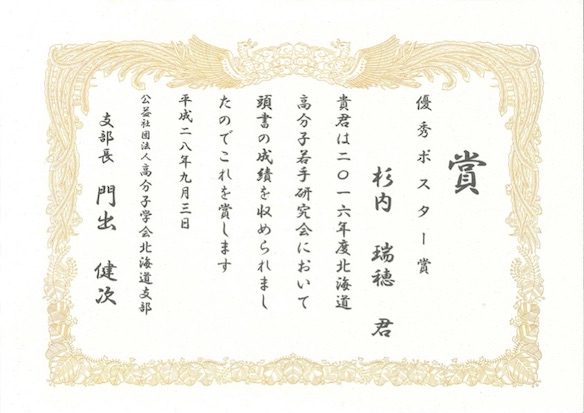 賞
優秀ポスター賞
杉内 瑞穂 君
貴君は二〇一六年度北海道
高分子若手研究会において
頭書の成績を収められまし
たのでこれを賞します
平成二八年九月三日
公益社団法人高分子学会北海道支部
支部長 門出 健次